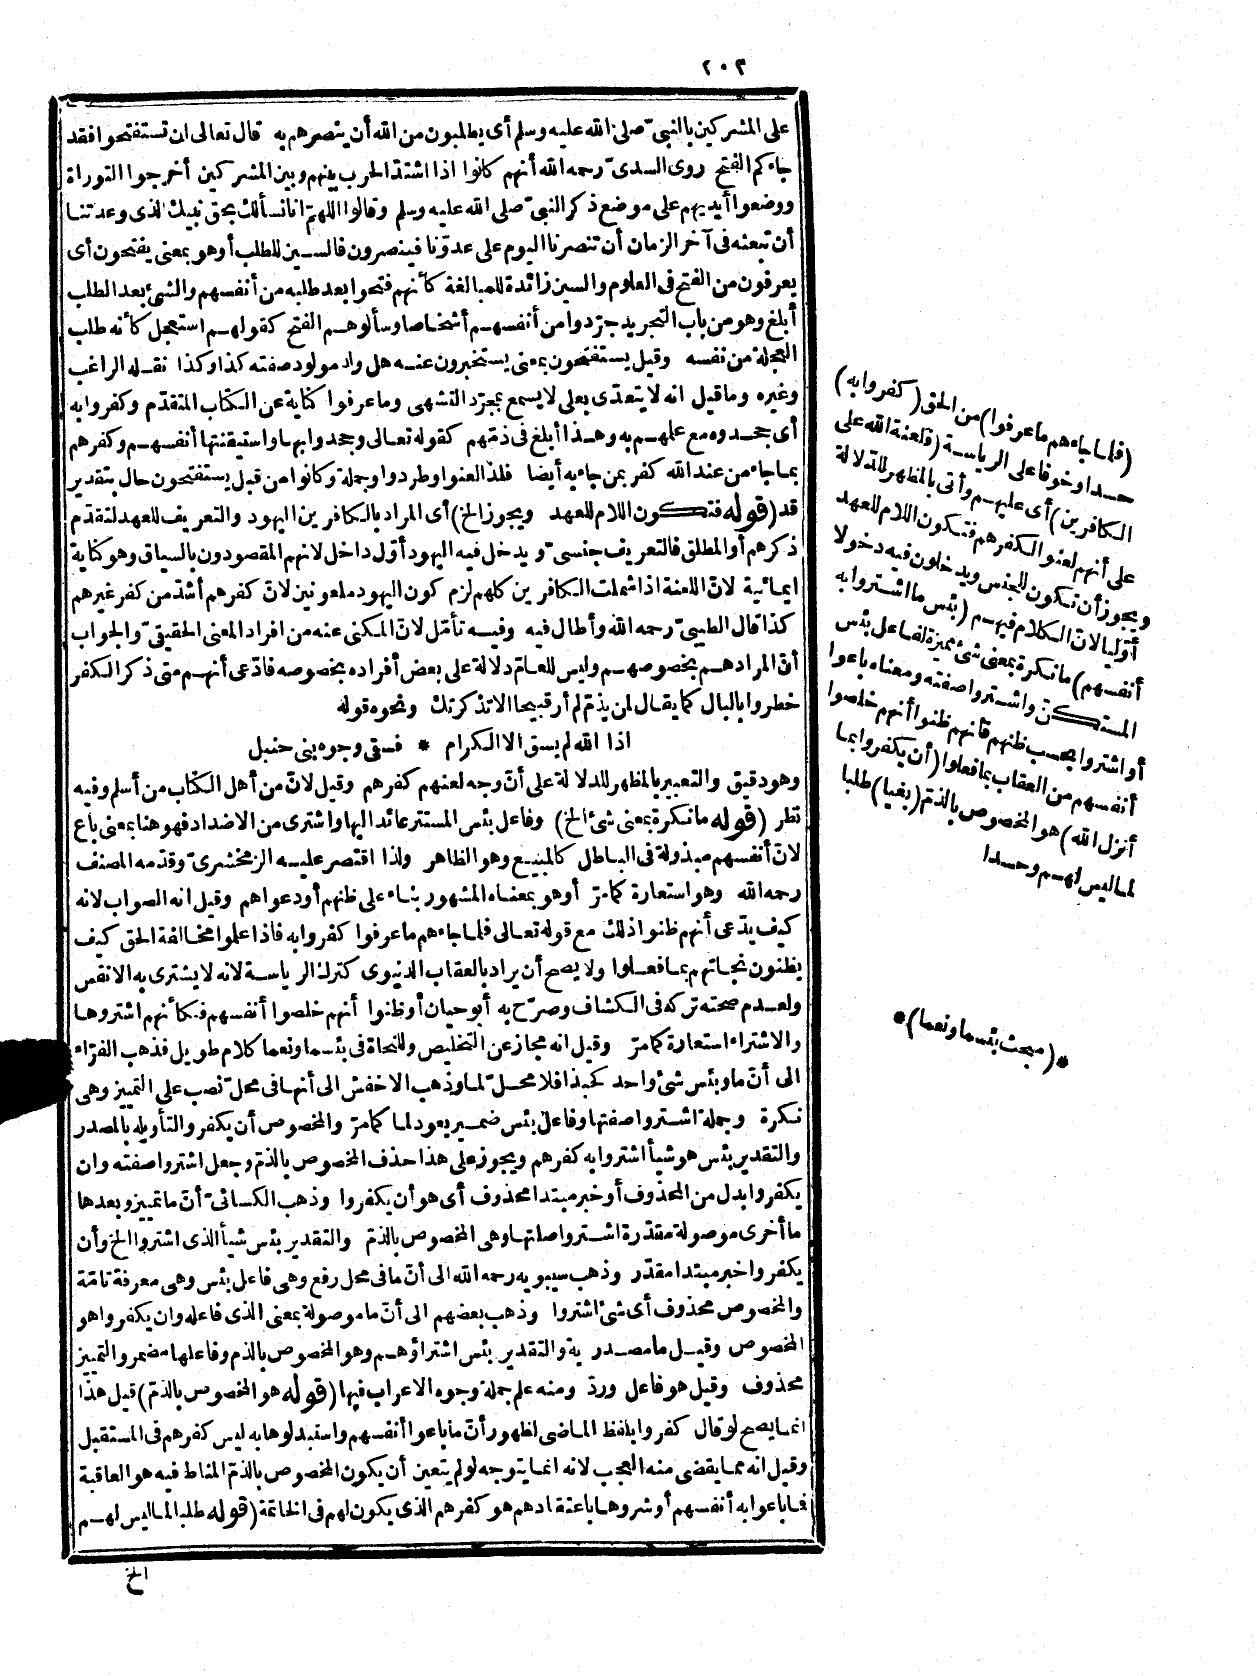 ٢٠٣
على المشركين بالنبىّ صلى الله عليه وسلم أى يطلبون من الله أن ينصرهم به قال تعالى ان تستفتحوا فقد
جاءكم الفتح روى السدىّ رحمه الله أنهم كانوا اذا اشتدّ الحرب بينهم وبين المشركين أخرجوا التوراة
ووضعوا أيديهم على موضع ذكر النبىّ صلى الله عليه وسلم وقالوا اللهمّ انا نسألك بحق نبيك الذى وعدتنا
أن تبعثه فى آخر الزمان أن تنصرنا اليوم على عدوّنا فينصرون فالسين للطلب أو هو بمعنى يفتحون أى
يعرفون من الفتح فى العلوم والسين زائدة للمبالغة كأنهم فتحوا بعد طلبه من أنفسهم والشئ بعد الطلب
أبلغ وهو من باب التجريد جرّدوا من أنفسهم أشخاصا وسألوهم الفتح كقولهم استعجل كأنه طلب
العجلة من نفسه وقيل يستفتحون بمعنى يستخبرون عنه هل ولد مولود صفته كذا وكذا نقله الراغب
وغيره وما قيل انه لا يتعدّى بعلى لا يسمع بمجرّد التشهى وما عرفوا كناية عن الكتاب المتقدّم وكفروا به
أى جحدوه مع علمهم به وهذا أبلغ فى ذمّهم كقوله تعالى وجحدوا بها واستيقنتها أنفسهم وكفرهم
بما جاء من عند الله كفر بمن جاء به أيضا فلذا لعنوا وطردوا وجملة وكانوا من قبل يستفتحون حال بتقدير
قد (قوله فتكون اللام للعهد ويجوز الخ) أى المراد بالكافرين اليهود والتعريف للعهد لتقدّم
ذكرهم أو المطلق فالتعريف جنسىّ ويدخل فيه اليهود أوّل داخل لانهم المقصودون بالسياق وهو كناية
ايمائية لانّ اللعنة اذا شملت الكافرين كلهم لزم كون اليهود ملعونين لانّ كفرهم أشدّ من كفر غيرهم
كذا قال الطيبىّ رحمه الله وأطال فيه وفيه تأمّل لانّ المكنى عنه من افراد المعنى الحقيقىّ والجواب
أنّ المراد هم بخصوصهم وليس للعام دلالة على بعض أفراده بخصوصه فادّعى أنهم متى ذكر الكفر
خطروا بالبال كما يقال لمن يذمّ لم أر قبيحا الا تذكرتك ونحوه قوله
اذا الله لم يسق الا الكرام * فسقى وجوه بنى حنبل
وهو دقيق والتعبير بالمظهر للدلالة على أنّ وجه لعنهم كفرهم وقيل لانّ من أهل الكتاب من أسلم وفيه
نظر (قوله ما نكرة بمعنى شئ الخ) وفاعل بئس المستتر عائد اليها واشترى من الاضداد فهو هنا بمعنى باع
لانّ أنفسهم مبذولة فى الباطل كالمبيع وهو الظاهر ولذا اقتصر عليه الزمخشرىّ وقدّمه المصنف
رحمه الله وهو استعارة كما مرّ أو هو بمعناه المشهور بناء على ظنهم أو دعواهم وقيل انه الصواب لانه
كيف يدّعى أنهم ظنوا ذلك مع قوله تعالى فلما جاءهم ما عرفوا كفروا به فاذا علموا مخالفة الحق كيف
يظنون نجاتهم بما فعلوا ولا يصح أن يراد بالعقاب الدنيوى كترك الرياسة لانه لا يشترى به الانفس
ولعدم صحته تركه فى الكشاف وصرّح به أبو حيان أو ظنوا أنهم خلصوا أنفسهم فكأنهم اشتروها
والاشتراء استعارة كما مرّ وقيل انه مجاز عن التخليص وللنحاة فى بئسما ونعما كلام طويل فذهب الفرّاء
الى أنّ ما وبئس شئ واحد كحبذا فلا محلّ لما وذهب الاخفش الى أنها فى محلّ نصب على التمييز وهى
نكرة وجملة اشتروا صفتها وفاعل بئس ضمير يعود لما كما مرّ والمخصوص أن يكفروا لتأويله بالمصدر
والتقدير بئس هو شيأ اشتروا به كفرهم ويجوز على هذا حذف المخصوص بالذمّ وجعل اشتروا صفته وان
يكفروا بدل من المحذوف أو خبر مبتدا محذوف أى هو أن يكفروا وذهب الكسائىّ أنّ ما تمييز وبعدها
ما أخرى موصولة مقدّرة اشتروا صلتها وهى المخصوص بالذمّ والتقدير بئس شيأ الذى اشتروا الخ وأن
يكفروا خبر مبتدا مقدّر وذهب سيبويه رحمه الله الى أنّ ما فى محل رفع وهى فاعل بئس وهى معرفة تامّة
والمخصوص محذوف أى شئ اشتروا وذهب بعضهم الى أنّ ما موصولة بمعنى الذى فاعله وان يكفروا هو
المخصوص وقيل ما مصدرية والتقدير بئس اشتراؤهم وهو المخصوص بالذم وفاعلها مضمر والتمييز
محذوف وقيل هو فاعل وردّ ومنه علم جملة وجوه الاعراب فيها (قوله هو المخصوص بالذمّ) قيل هذا
انما يصح لو قال كفروا بلفظ الماضى لظهور أنّ ما باعوا أنفسهم واستبدلوها به ليس كفرهم فى المستقبل
وقيل انه مما يقضى منه العجب لانه انما يتوجه لو لم يتعين أن يكون المخصوص بالذمّ المناط فيه هو العاقبة
فما باعوا به أنفسهم أو شروها باعتقادهم هو كفرهم الذى يكون لهم فى الخاتمة (قوله طلبا لما ليس لهم
الخ
(فلما جاءهم ما عرفوا) من الحق (كفروا به)
حسدا وخوفا على الرياسة (فلعنة الله على
الكافرين) أى عليهم وأتى بالمظهر للدلالة
على أنهم لعنوا لكفرهم فتكون اللام للعهد
ويجوز أن تكون للجنس ويدخلون فيه دخولا
أوّليا لانّ الكلام فيهم (بئس ما اشتروا به
أنفسهم) ما نكرة بمعنى شئ مميزة لفاعل بئس
المستكنّ واشتروا صفته ومعناه باعوا
أو اشتروا بحسب ظنهم فانهم ظنوا أنهم خلصوا
أنفسهم من العقاب بما فعلوا (أن يكفروا بما
أنزل الله) هو المخصوص بالذمّ (بغيا) طلبا
لما ليس لهم وحسدا
*(مبحث بئسما ونعما)*